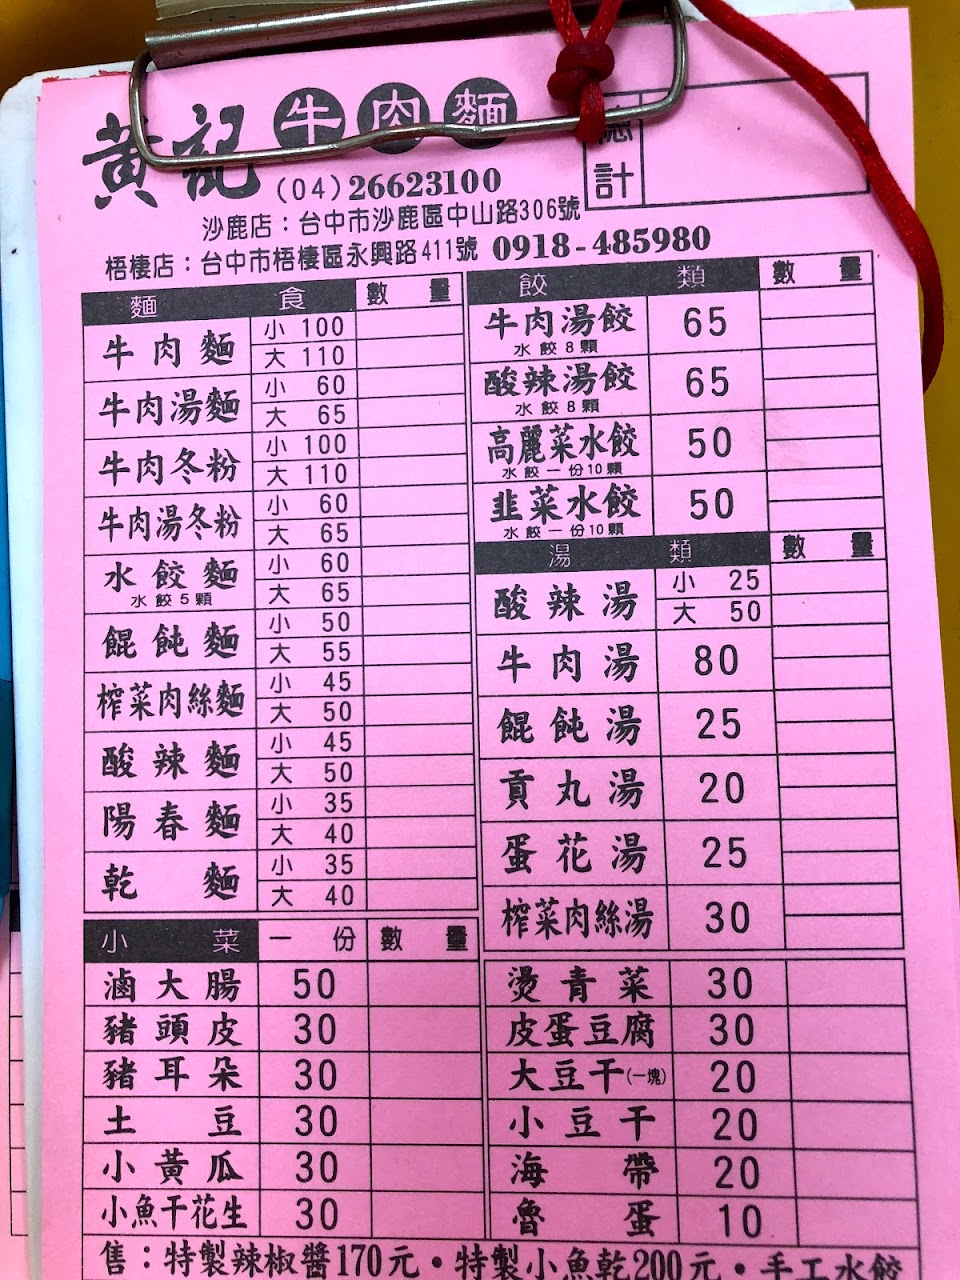 黃記牛肉麵
總計
(04)26623100
沙鹿店：台中市沙鹿區中山路306號
梧棲店：台中市梧棲區永興路411號 0918-485980
麵食 數量
牛肉麵 小 100
大 110
牛肉湯麵 小 60
大 65
牛肉冬粉 小 100
大 110
牛肉湯冬粉 小 60
大 65
水餃麵 小 60
水餃5顆 大 65
餛飩麵 小 50
大 55
榨菜肉絲麵 小 45
大 50
酸辣麵 小 45
大 50
陽春麵 小 35
大 40
乾麵 小 35
大 40
餃類 數量
牛肉湯餃 65
水餃8顆
酸辣湯餃 65
水餃8顆
高麗菜水餃 50
水餃一份10顆
韭菜水餃 50
水餃一份10顆
湯類 數量
酸辣湯 小 25
大 50
牛肉湯 80
餛飩湯 25
貢丸湯 20
蛋花湯 25
榨菜肉絲湯 30
小菜 一份 數量
滷大腸 50
豬頭皮 30
豬耳朵 30
土豆 30
小黃瓜 30
小魚干花生 30
燙青菜 30
皮蛋豆腐 30
大豆干(一塊) 20
小豆干 20
海帶 20
魯蛋 10
售：特製辣椒醬170元・特製小魚乾200元・手工水餃